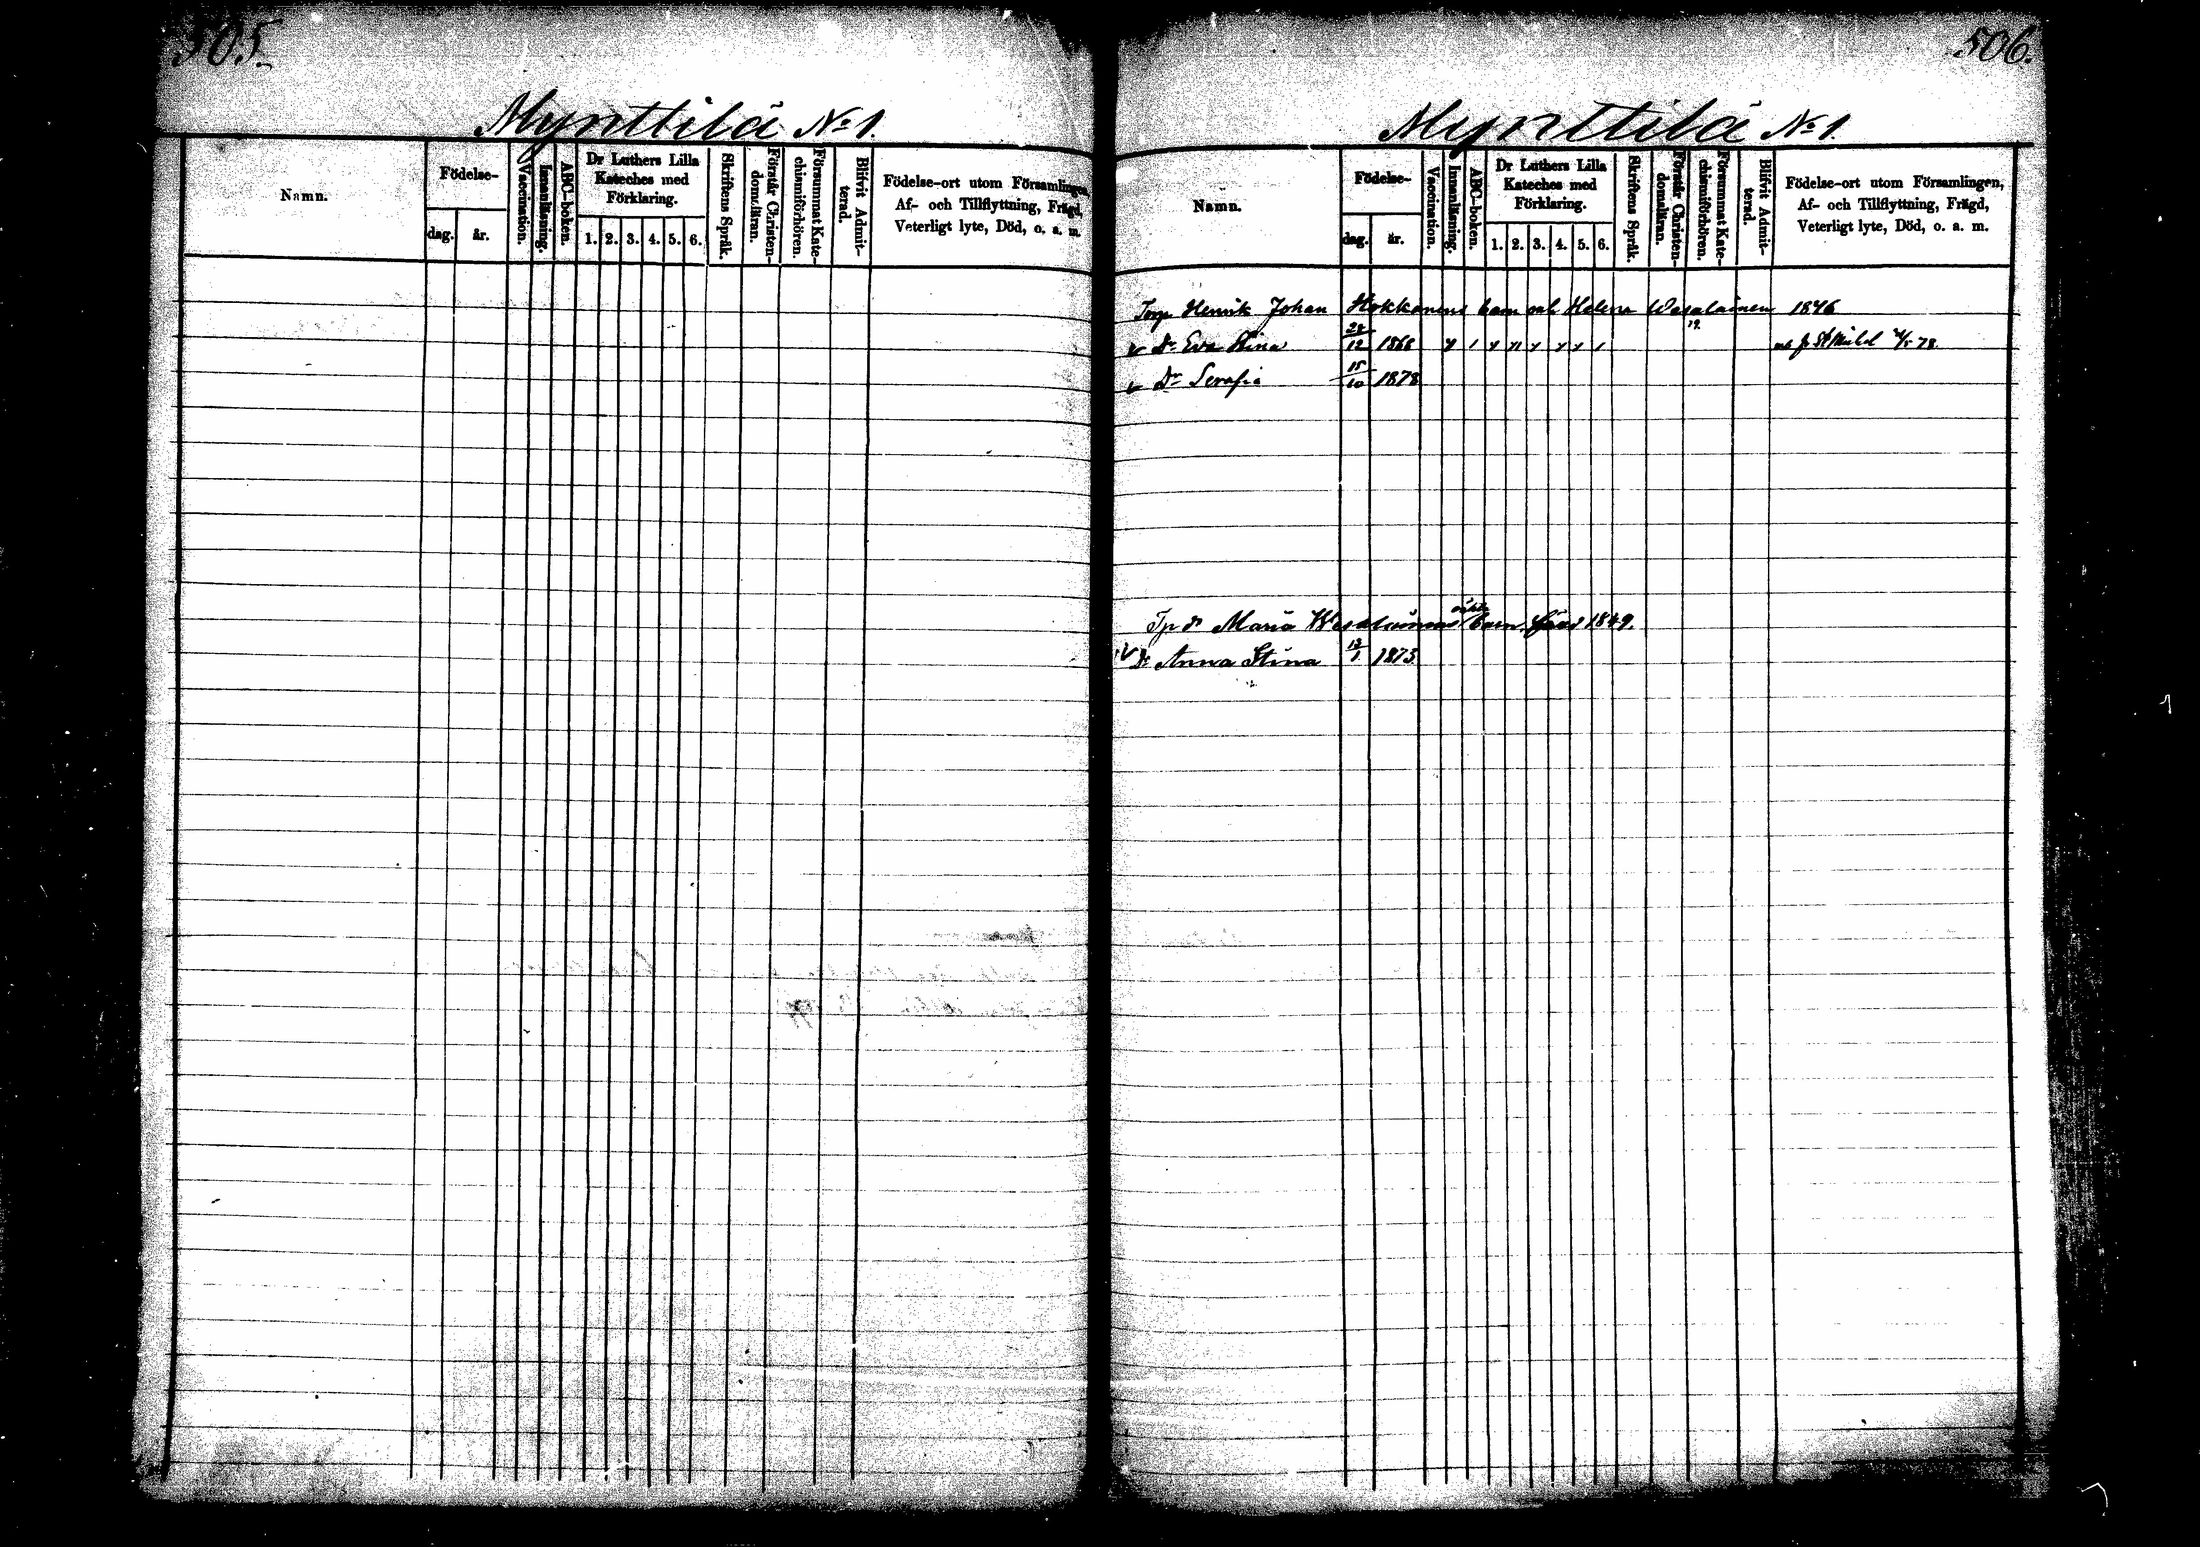 505.
Mynttilä No 1.
Namn.
Födelse-
dag.
år.
Vaccination.
Innanläsning.
ABC-boken.
Dr Luthers Lilla
Kateches med
Förklaring.
1. 2. 3. 4. 5. 6.
Skriftens Språk.
Förstår Christen-
domsläran.
Försummat Kate-
chismiförhören.
Blifvit Admit-
terad.
Födelse-ort utom Församlingen,
Af- och Tillflyttning, Frägd,
Veterligt lyte, Död, o. a. m.
506.
Mynttilä No 1.
Namn.
Födelse-
dag.
år.
Vaccination.
Innanläsning.
ABC-boken.
Dr Luthers Lilla
Kateches med
Förklaring.
1. 2. 3. 4. 5. 6.
Skriftens Språk.
Förstår Christen-
domsläran.
Försummat Kate-
chismiförhören.
Blifvit Admit-
terad.
Födelse-ort utom Församlingen,
Af- och Tillflyttning, Frägd,
Veterligt lyte, Död, o. a. m.
Torp Henrik Johan Hokkanens barn och Helena Wesalainen 1846
Dr Eva Stina 28/12 1868 78
Dr Serafia 15/10 1878
Tp dr Maria Wesalainens barn född 1849.
Dr Anna Stina 1873